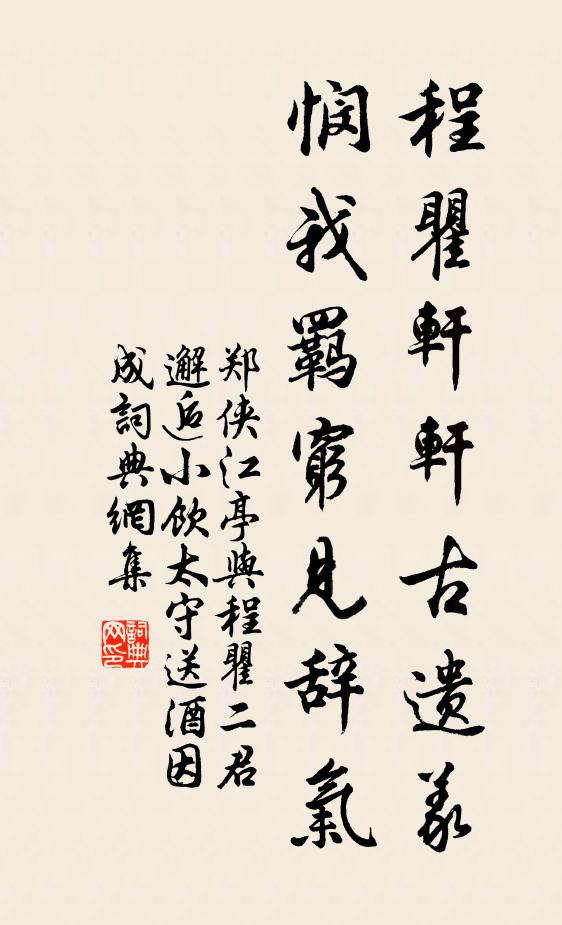 程瞿軒軒古遗義
悯我羁窮見辞氣
郑侠江亭與程瞿二君
邂逅小飲太守送酒因
成詞典網集
詞典
网印